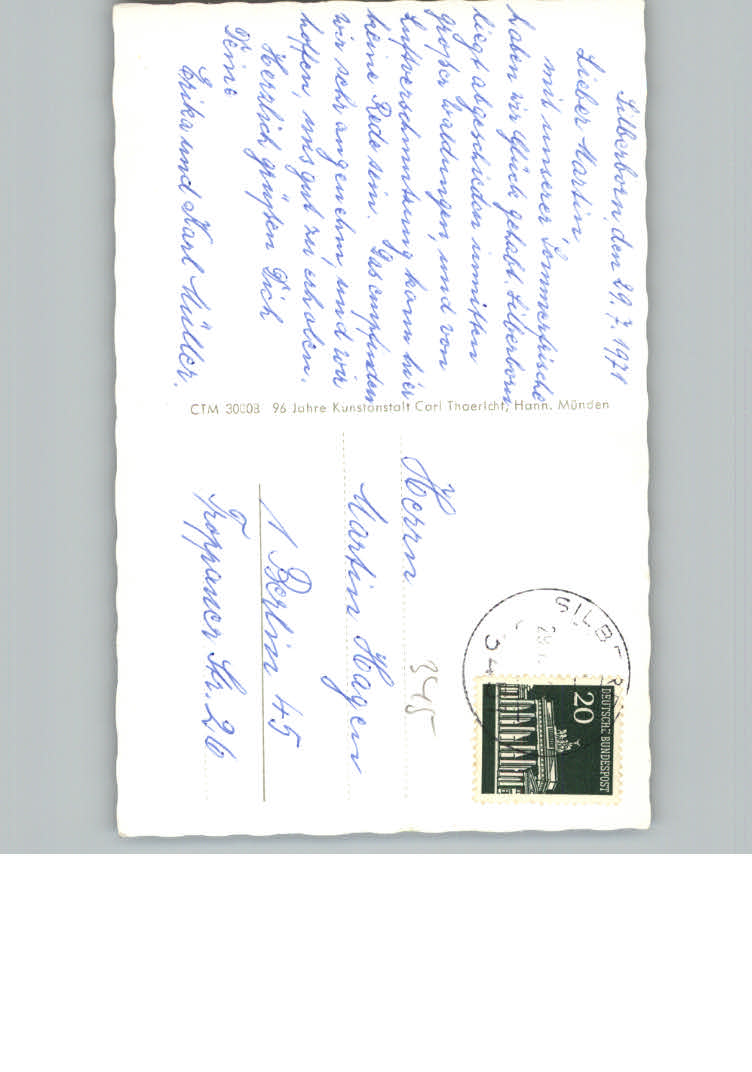 Silberborn, den 29.7.1971
Lieber Martin,
mit unserer Sommerfrische
haben wir Glück gehabt. Silberborn
liegt abgeschieden inmitten
großer Waldungen, und von
Luftverschmutzung kann hier
keine Rede sein. Das empfinden
wir sehr angenehm, und wir
hoffen, uns gut zu erholen.
Herzlich grüßen Dich
Deine
Erika und Karl Müller.
CTM 30003 96 Jahre Kunstanstalt Carl Thoericht, Hann. Münden
Herrn
Martin Hagen
1 Berlin 45
Troppauer Str. 26
345
SILB
29.
34
20
DEUTSCHE BUNDESPOST